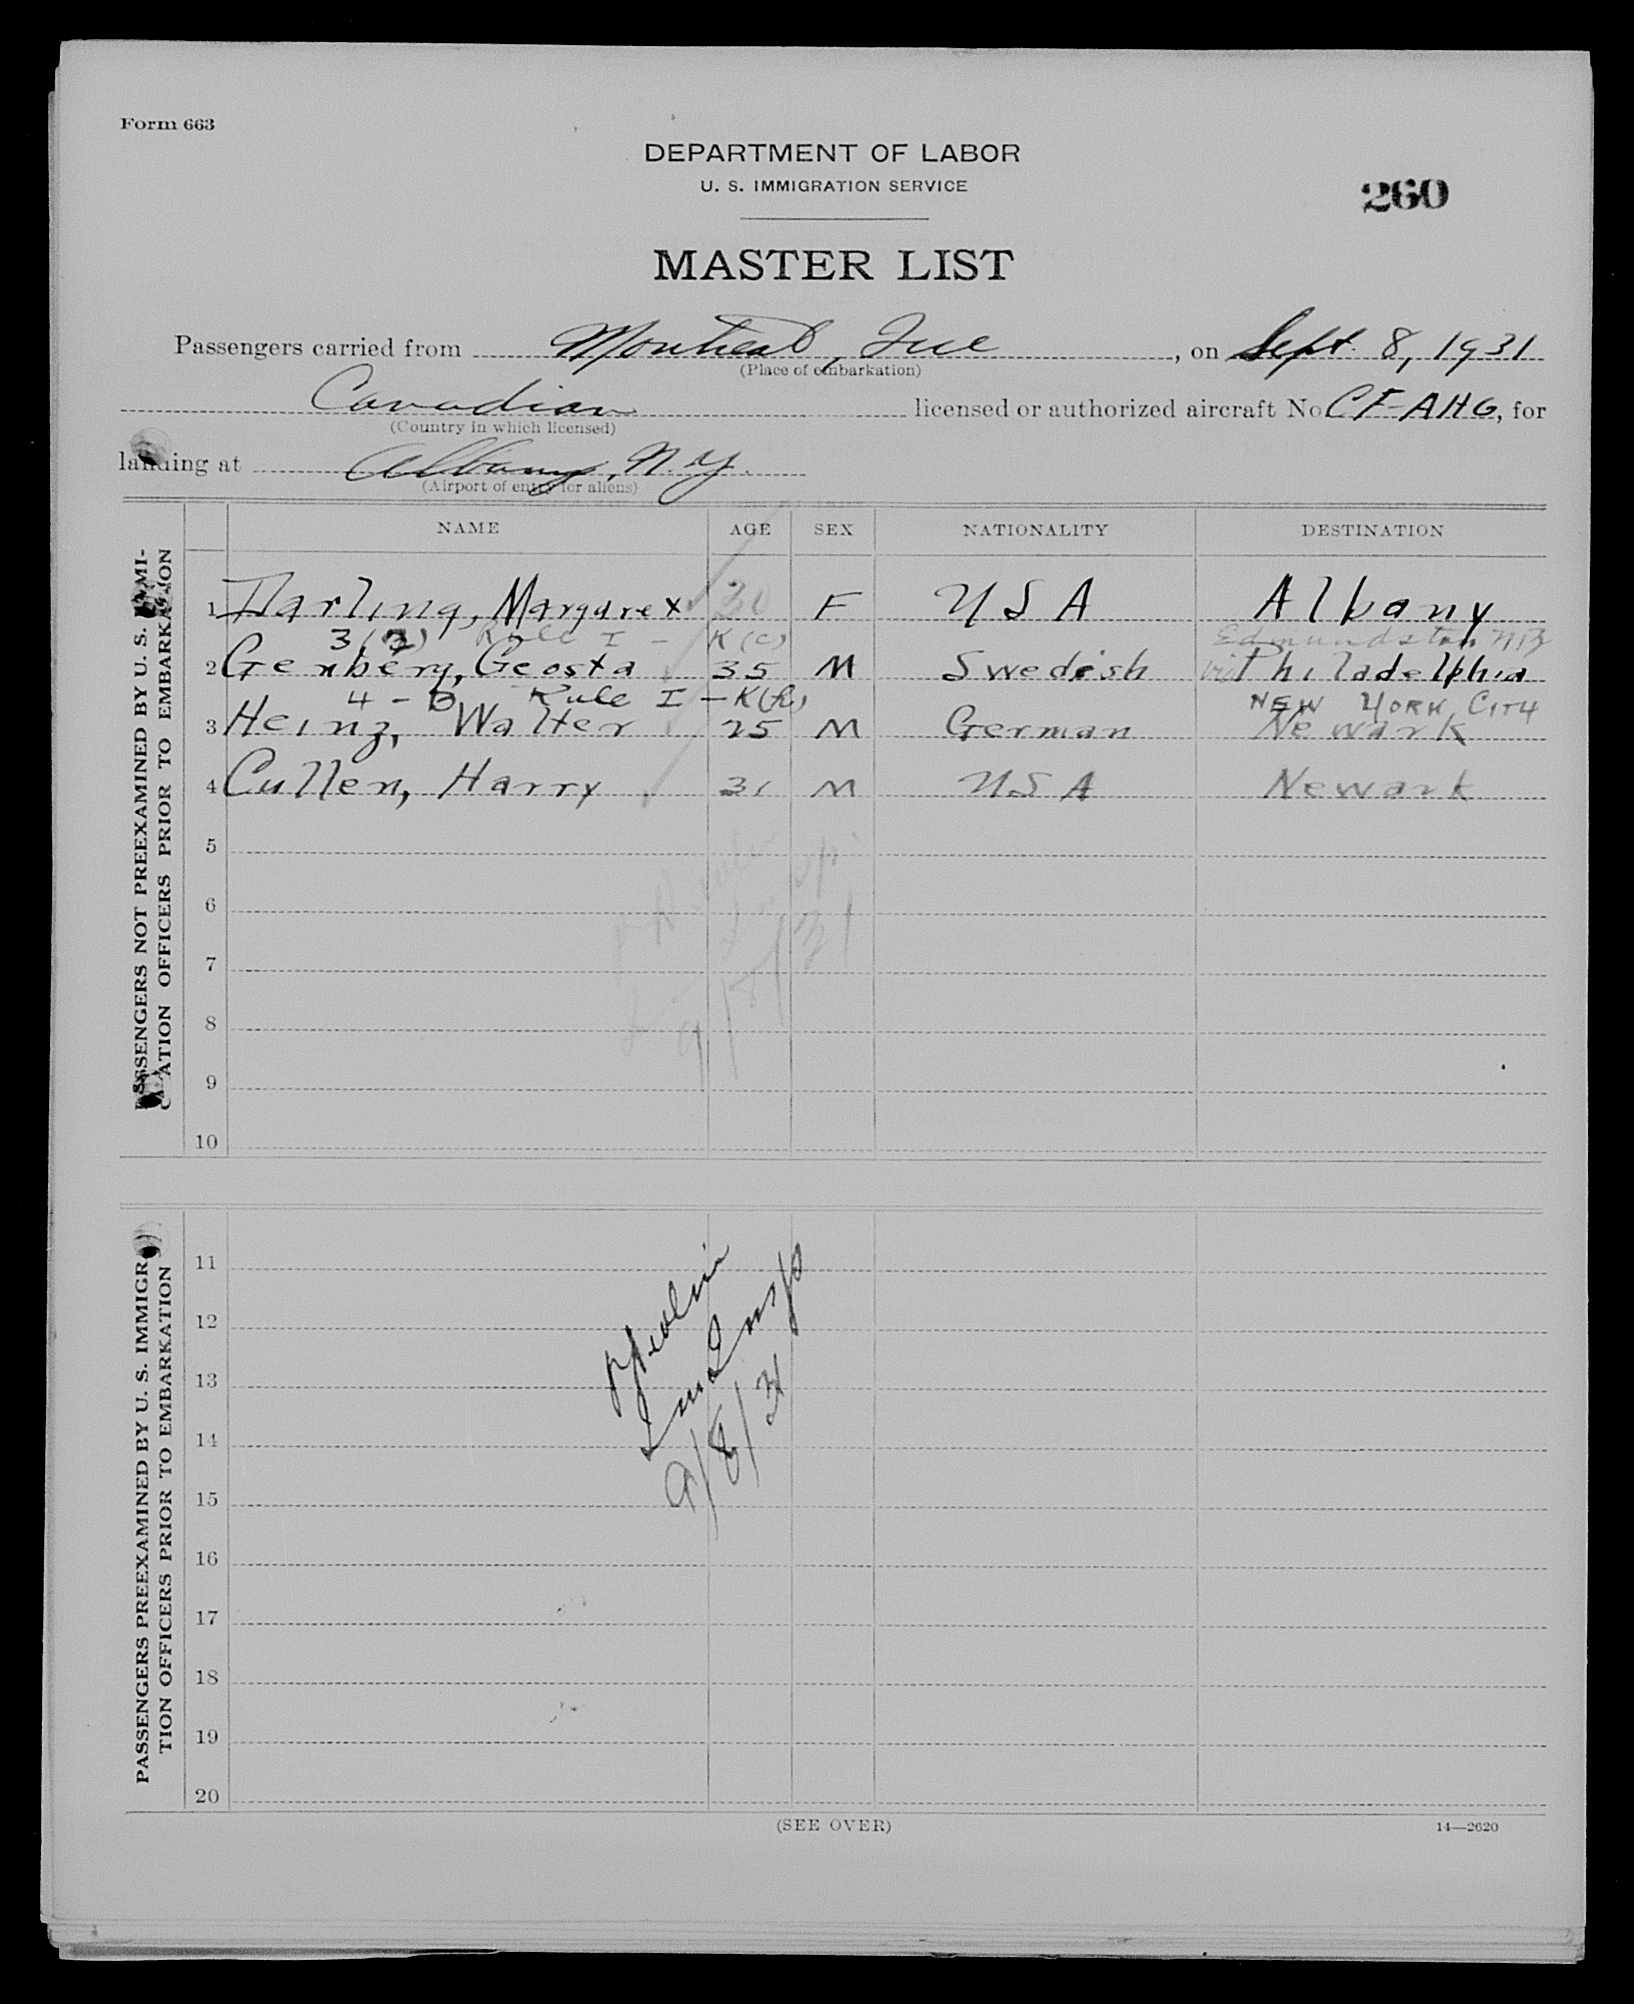 Form 663
DEPARTMENT OF LABOR
U. S. IMMIGRATION SERVICE
260
MASTER LIST
Passengers carried from Montreal, Que, on Sept. 8, 1931
(Place of embarkation)
Canadian licensed or authorized aircraft No. CF-AHG, for
(Country in which licensed)
landing at Albany, N.Y.
(Airport of entry for aliens)
NAME AGE SEX NATIONALITY DESTINATION
PASSENGERS NOT PREEXAMINED BY U. S. IMMI-
GRATION OFFICERS PRIOR TO EMBARKATION
1 Darling, Margaret 30 F USA Albany
3(2) Rule I - K(c) Edmundston NB
2 Genberg, Geosta 35 M Swedish Philadelphia
4-B Rule I-K(h) NEW YORK CITY
3 Heinz, Walter 25 M German Newark
4 Cullen, Harry 31 M USA Newark
5
6
7
8
9
10
9/8/31
PASSENGERS PREEXAMINED BY U. S. IMMIGRA-
TION OFFICERS PRIOR TO EMBARKATION
11
12
13
14
15
16
17
18
19
20
Imm Insp
9/8/31
(SEE OVER)
14—2620